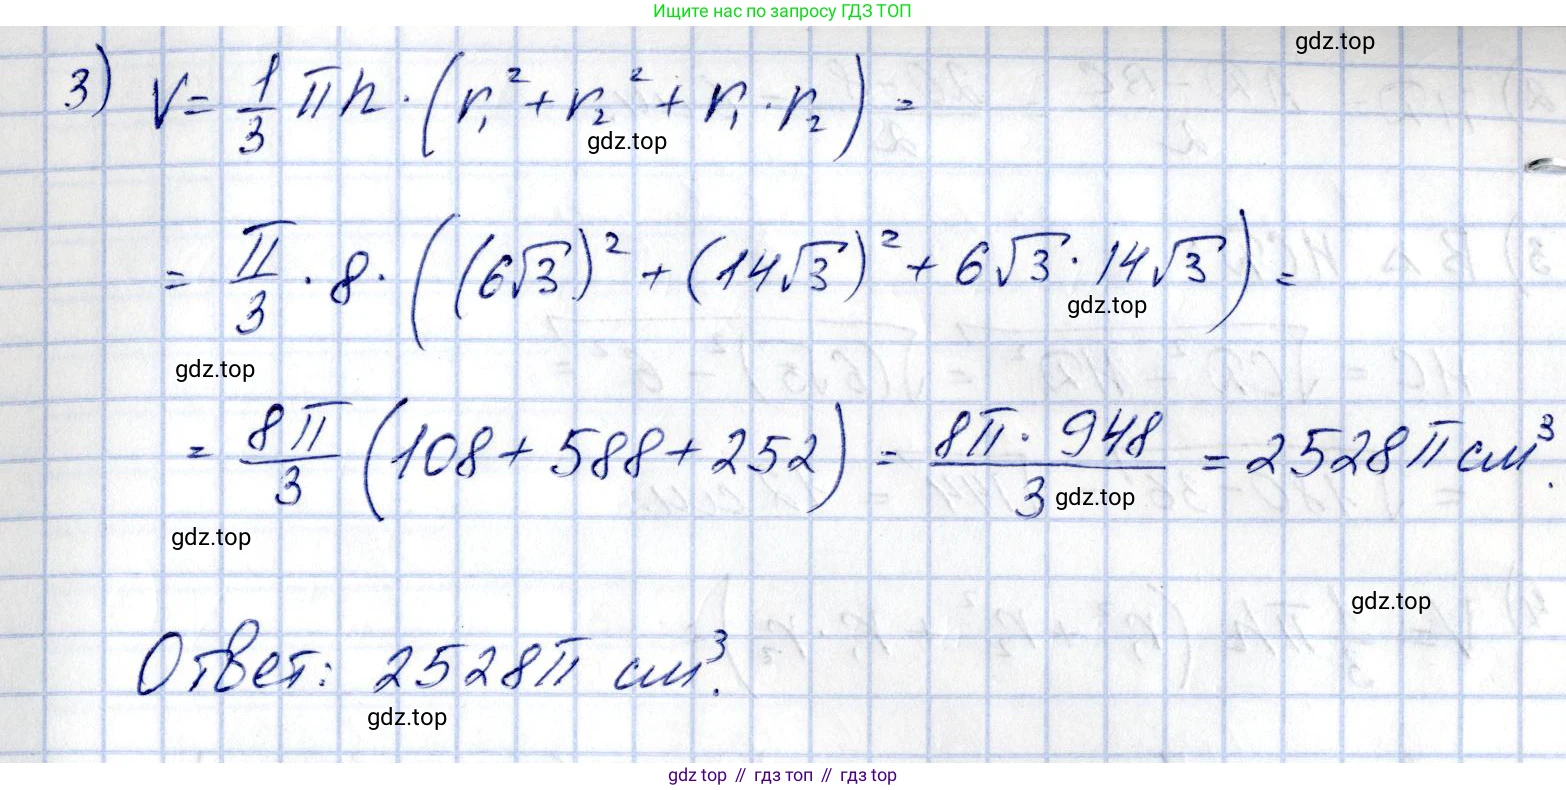 Ищите нас по запросу ГДЗ ТОП
gdz.top
3) V = 1/3 πh · (r₁² + r₂² + r₁ · r₂) =
gdz.top
= π/3 · 8 · ((6√3)² + (14√3)² + 6√3 · 14√3) =
gdz.top
gdz.top
= 8π/3 (108 + 588 + 252) = 8π · 948/3 = 2528π см³.
gdz.top
gdz.top
gdz.top
Ответ: 2528π см³.
gdz.top
gdz top // гдз топ // гдз top